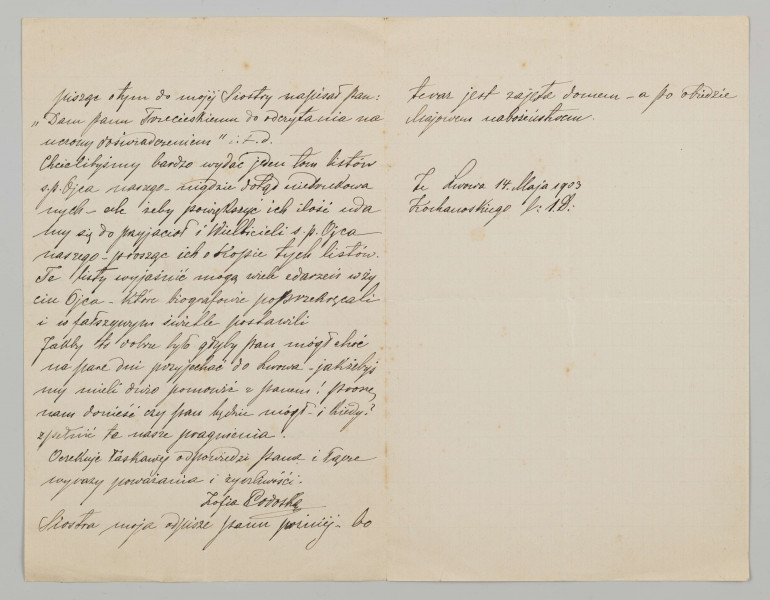 pisząc o tym do mojéj Siostry napisał pan:
„Dam panu Trzecieskiemu do odczytania na
uczony doświadczeniem" i.t.d.
Chcielibyśmy bardzo wydać jeden tom listów
s.p. Ojca naszego – nigdzie dotąd niedrukowa
nych – ale żeby powiększyć ich ilość uda
my się do przyjaciół i Wielbicieli s.p. Ojca
naszego – prosząc ich o kopie tych listów.
Te listy wyjaśnić mogą wiele zdarzeń w ży
ciu Ojca – które biografowie poprzekręcali
i w fałszywym świetle postawili
Jakby to dobrze było gdyby pan mógł choć
na parę dni przyjechać do Lwowa – jakżebyś
my mieli dużo pomówić z panem! proszę
nam donieść czy pan będzie mógł – i kiedy?
spełnić te nasze pragnienia.
Oczekuje łaskawej odpowiedzi pana i łącze
wyrazy poważania i życzliwości.
Zofia Podoską
Siostra moja odpisze panu poźniéj – bo
teraz jest zajęta domem – a po obiedzie
Majowem nabożeństwem.
Ze Lwowa 14. Maja 1903
Kochanoskiégo